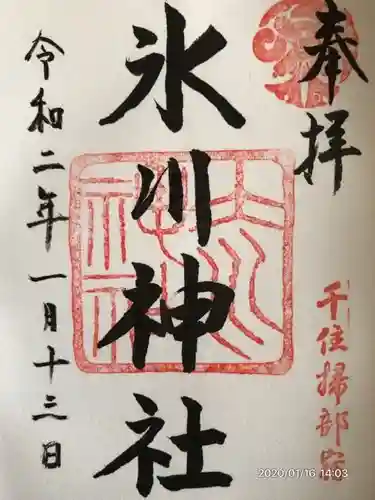 奉拝
千住掃部宿
氷川神社
令和二年一月十三日
2020/01/16 14:03